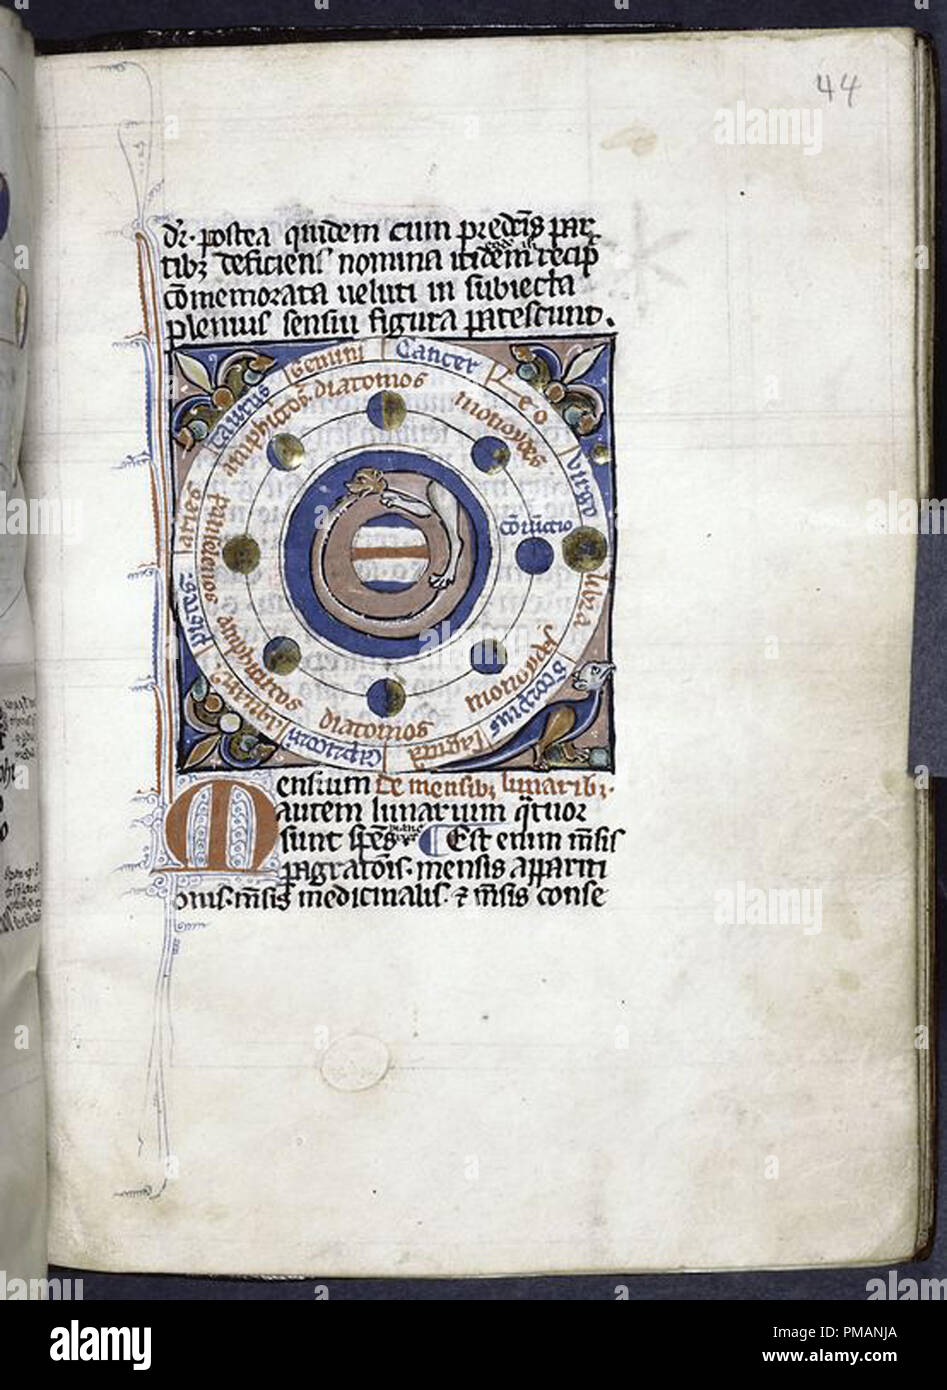 44
dr. postea quidem cum predcis par
tibz deficiens nomina itidem recip
comemorata ueluti in subiecta
plenius sensui figura patescunt.
Gemini
Cancer
Leo
Virgo
libra
Scorpius
Sagitta
Capricorn
Aries
Taurus
amphictos
diatomos
monoydes
coniunctio
monoydes
diatomos
amphictos
panselenos
Mensium de mensibz lunaribz.
autem lunarium qtuor
sunt spes Est enim msis
pagratois. mensis appariti
onis. msis medicinalis. & msis conse
alamy
Image ID: PMANJA
www.alamy.com